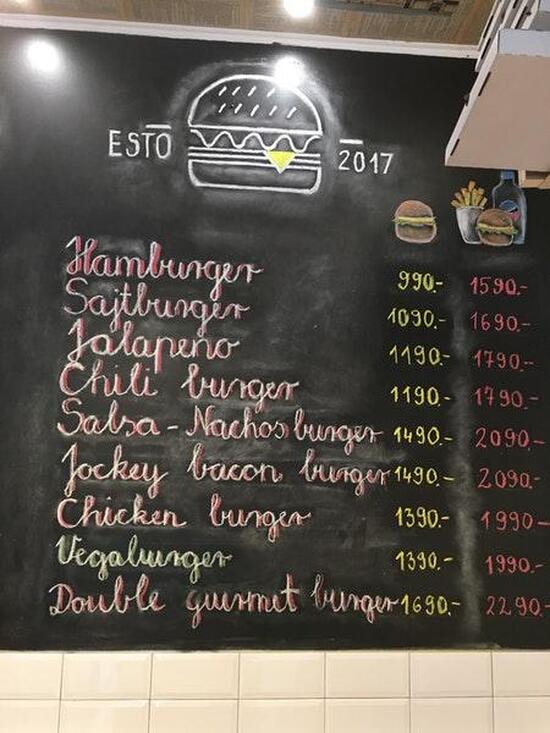 ESTD 2017
Hamburger 990.- 1590.-
Sajtburger 1090.- 1690.-
Jalapeno 1190.- 1790.-
Chili burger 1190.- 1790.-
Salsa-Nachos burger 1490.- 2090.-
Jockey bacon burger 1490.- 2090.-
Chicken burger 1390.- 1990-
Vegaburger 1390.- 1990.-
Double gurmet burger 1690.- 2290.-